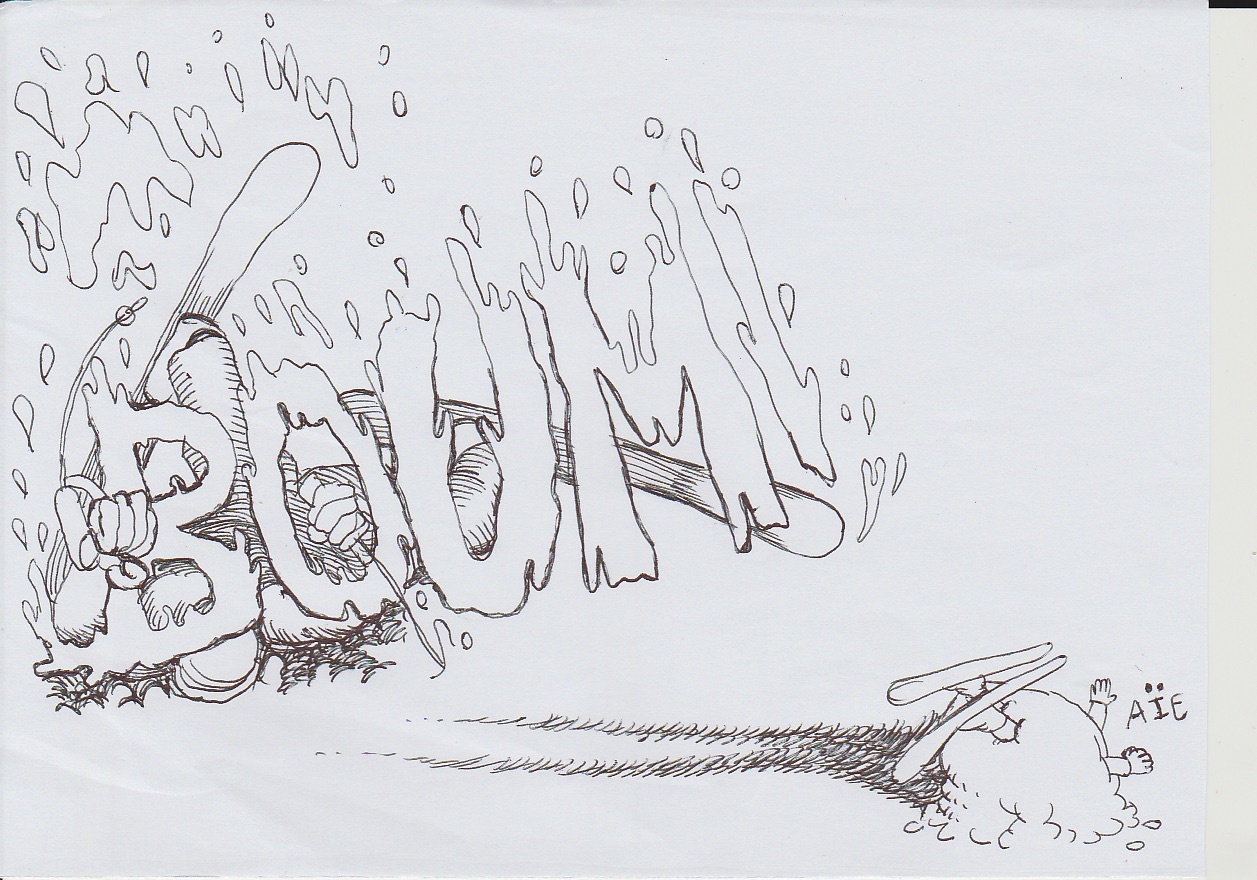 BOUM
AÏE